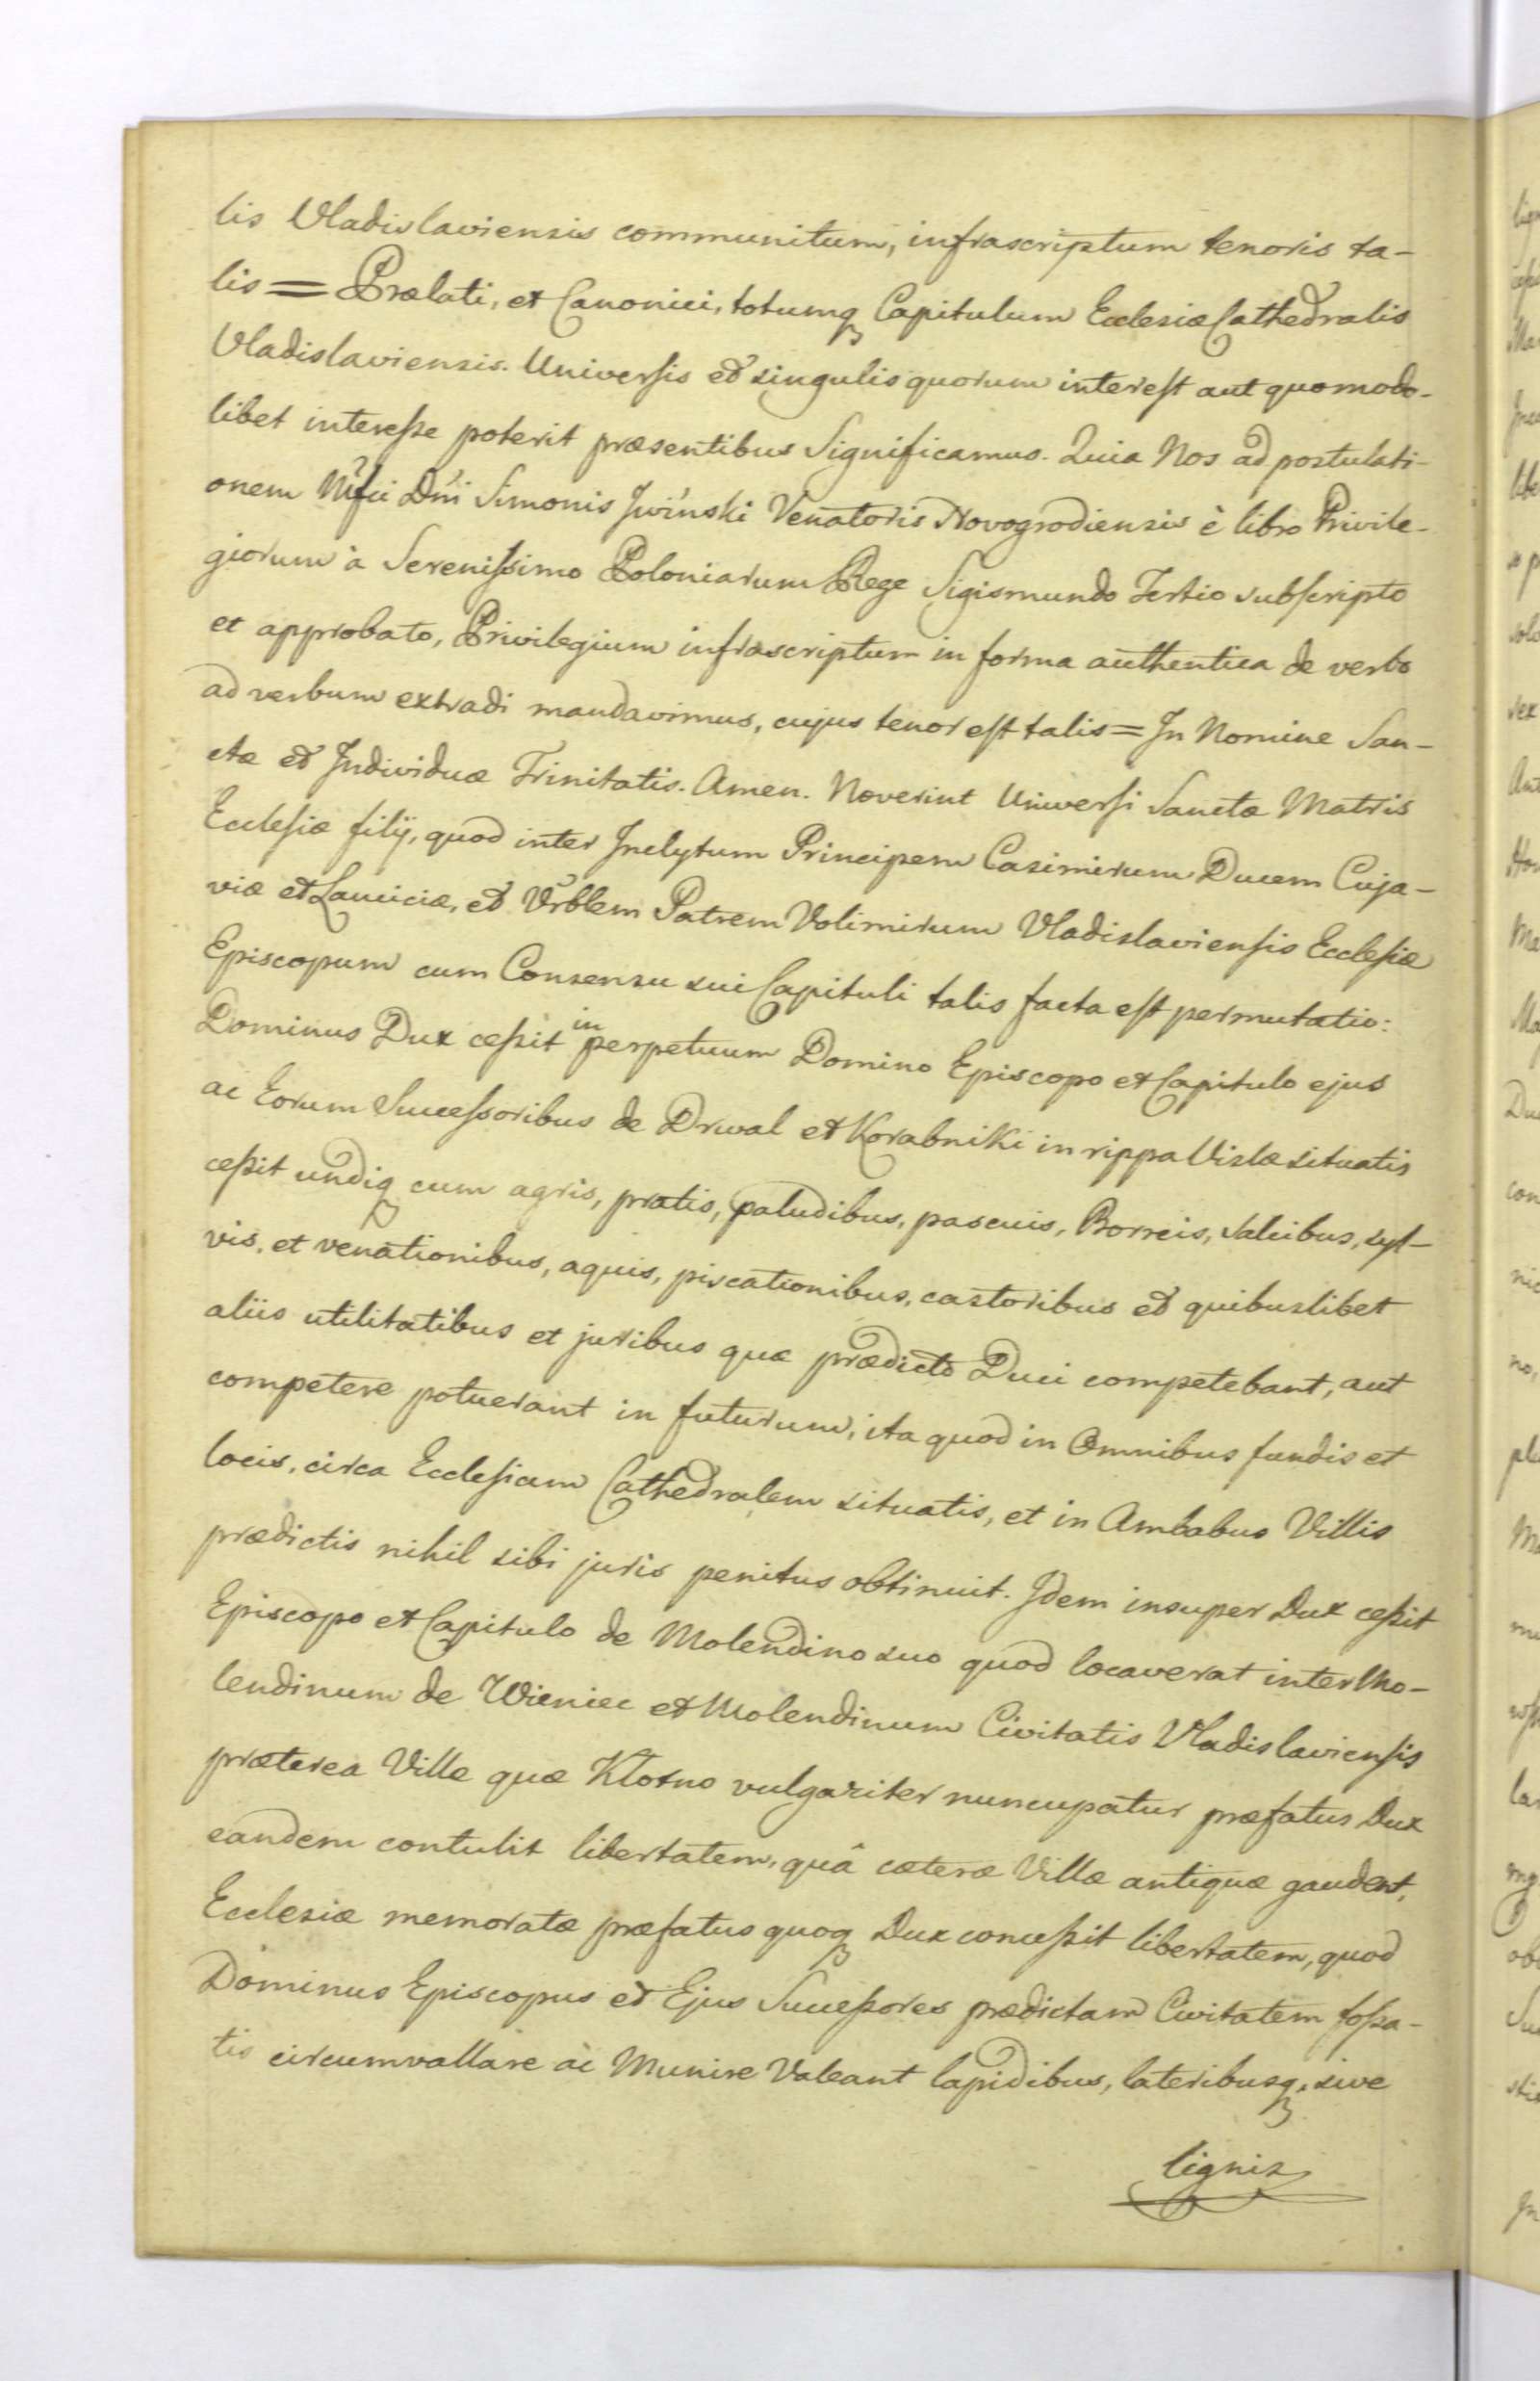 lis Vladislaviensis communitum, infrascriptum tenoris ta-
lis = Prælati, et Canonici, totumq Capitulum Ecclesiæ Cathedralis
Vladislaviensis. Universis et singulis quorum interest aut quomodo-
libet interesse poterit præsentibus Significamus. Quia Nos ad postulati-
onem Mfci Dni Simonis Jwiński Venatoris Novogrodiensis è libro Privile-
giorum à Serenissimo Poloniarum Rege Sigismundo Tertio subscripto
et approbato, Privilegium infrascriptum in forma authentica de verbo
ad verbum extradi mandavimus, cujus tenor est talis = In Nomine San-
ctæ et Individuæ Trinitatis. Amen. Noverint Universi Sanctæ Matris
Ecclesiæ filij, quod inter Inclytum Principem Casimirum Ducem Cuja-
viæ et Lanciciæ, et Vrblem Patrem Volimirum Vladislaviensis Ecclesiæ
Episcopum cum Consensu sui Capituli talis facta est permutatio:
Dominus Dux cessit in perpetuum Domino Episcopo et Capitulo ejus
ac Eorum Successoribus de Drwal et Korabniki in rippa Vislæ situatis
cessit undiq cum agris, pratis, paludibus, pascuis, Borreis, salicibus, syl-
vis, et venationibus, aquis, piscationibus, castoribus et quibuslibet
aliis utilitatibus et juribus quæ prædicto Duci competebant, aut
competere potuerant in futurum, ita quod in Omnibus fundis et
locis, circa Ecclesiam Cathedralem situatis, et in Ambabus Villis
prædictis nihil sibi juris penitus obtinuit. Idem insuper Dux cessit
Episcopo et Capitulo de Molendino suo quod locaverat inter Mo-
lendinum de Wieniec et Molendinum Civitatis Vladislaviensis
præterea Villæ quæ Kłotno vulgariter nuncupatur præfatus Dux
eandem contulit libertatem, quâ cæteræ Villæ antiquæ gaudent,
Ecclesiæ memoratæ præfatus quoq Dux concessit libertatem, quod
Dominus Episcopus et Ejus Successores prædictam Civitatem fossa-
tis circumvallare ac Munire Valeant lapidibus, lateribusq, sive
lignis